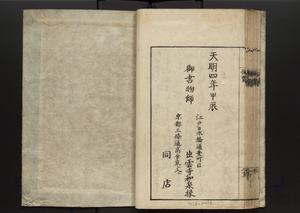 天明四年甲辰
御書物師
江戸日本橋通壹町目
出雲寺和泉掾
京都三條通高倉東入
同店